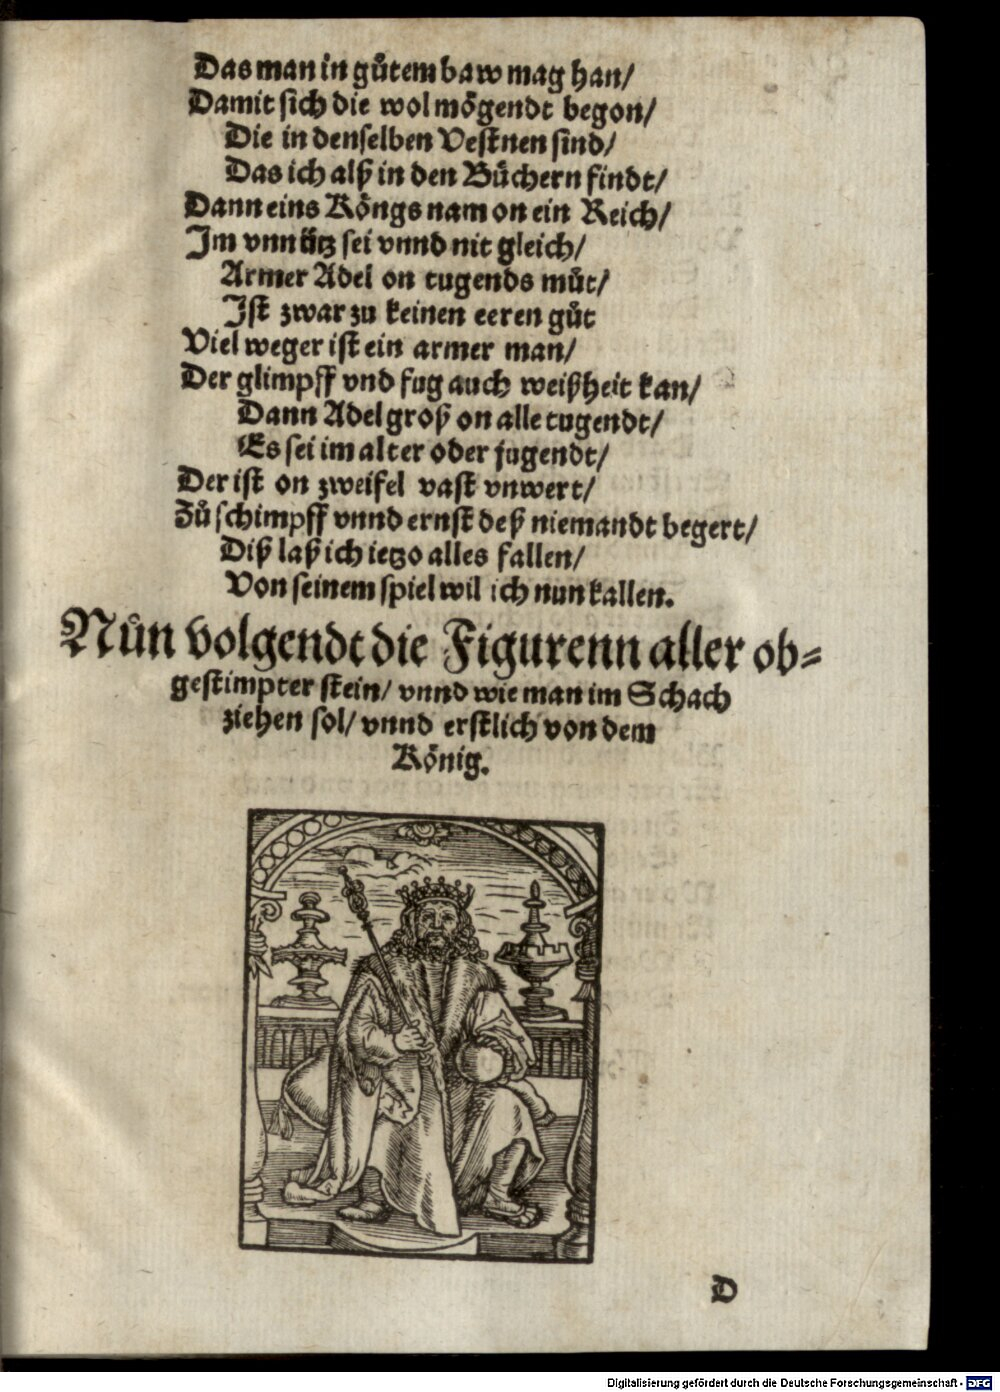 Das man in gůtem baw mag han/
Damit sich die wol mögendt begon/
Die in denselben Vestnen sind/
Das ich alß in den Büchern findt/
Dann eins Köngs nam on ein Reich/
Im vnnütz sei vnnd nit gleich/
Armer Adel on tugends můt/
Ist zwar zu keinen eeren gůt
Viel weger ist ein armer man/
Der glimpff vnd fug auch weißheit kan/
Dann Adel groß on alle tugendt/
Es sei im alter oder jugendt/
Der ist on zweifel vast vnwert/
Zů schimpff vnnd ernst deß niemandt begert/
Diß laß ich ietzo alles fallen/
Von seinem spiel wil ich nun kallen.
Nůn volgendt die Figurenn aller ob⸗
gestimpter stein/ vnnd wie man im Schach
ziehen sol/ vnnd erstlich von dem
König.
D
Digitalisierung gefördert durch die Deutsche Forschungsgemeinschaft - DFG